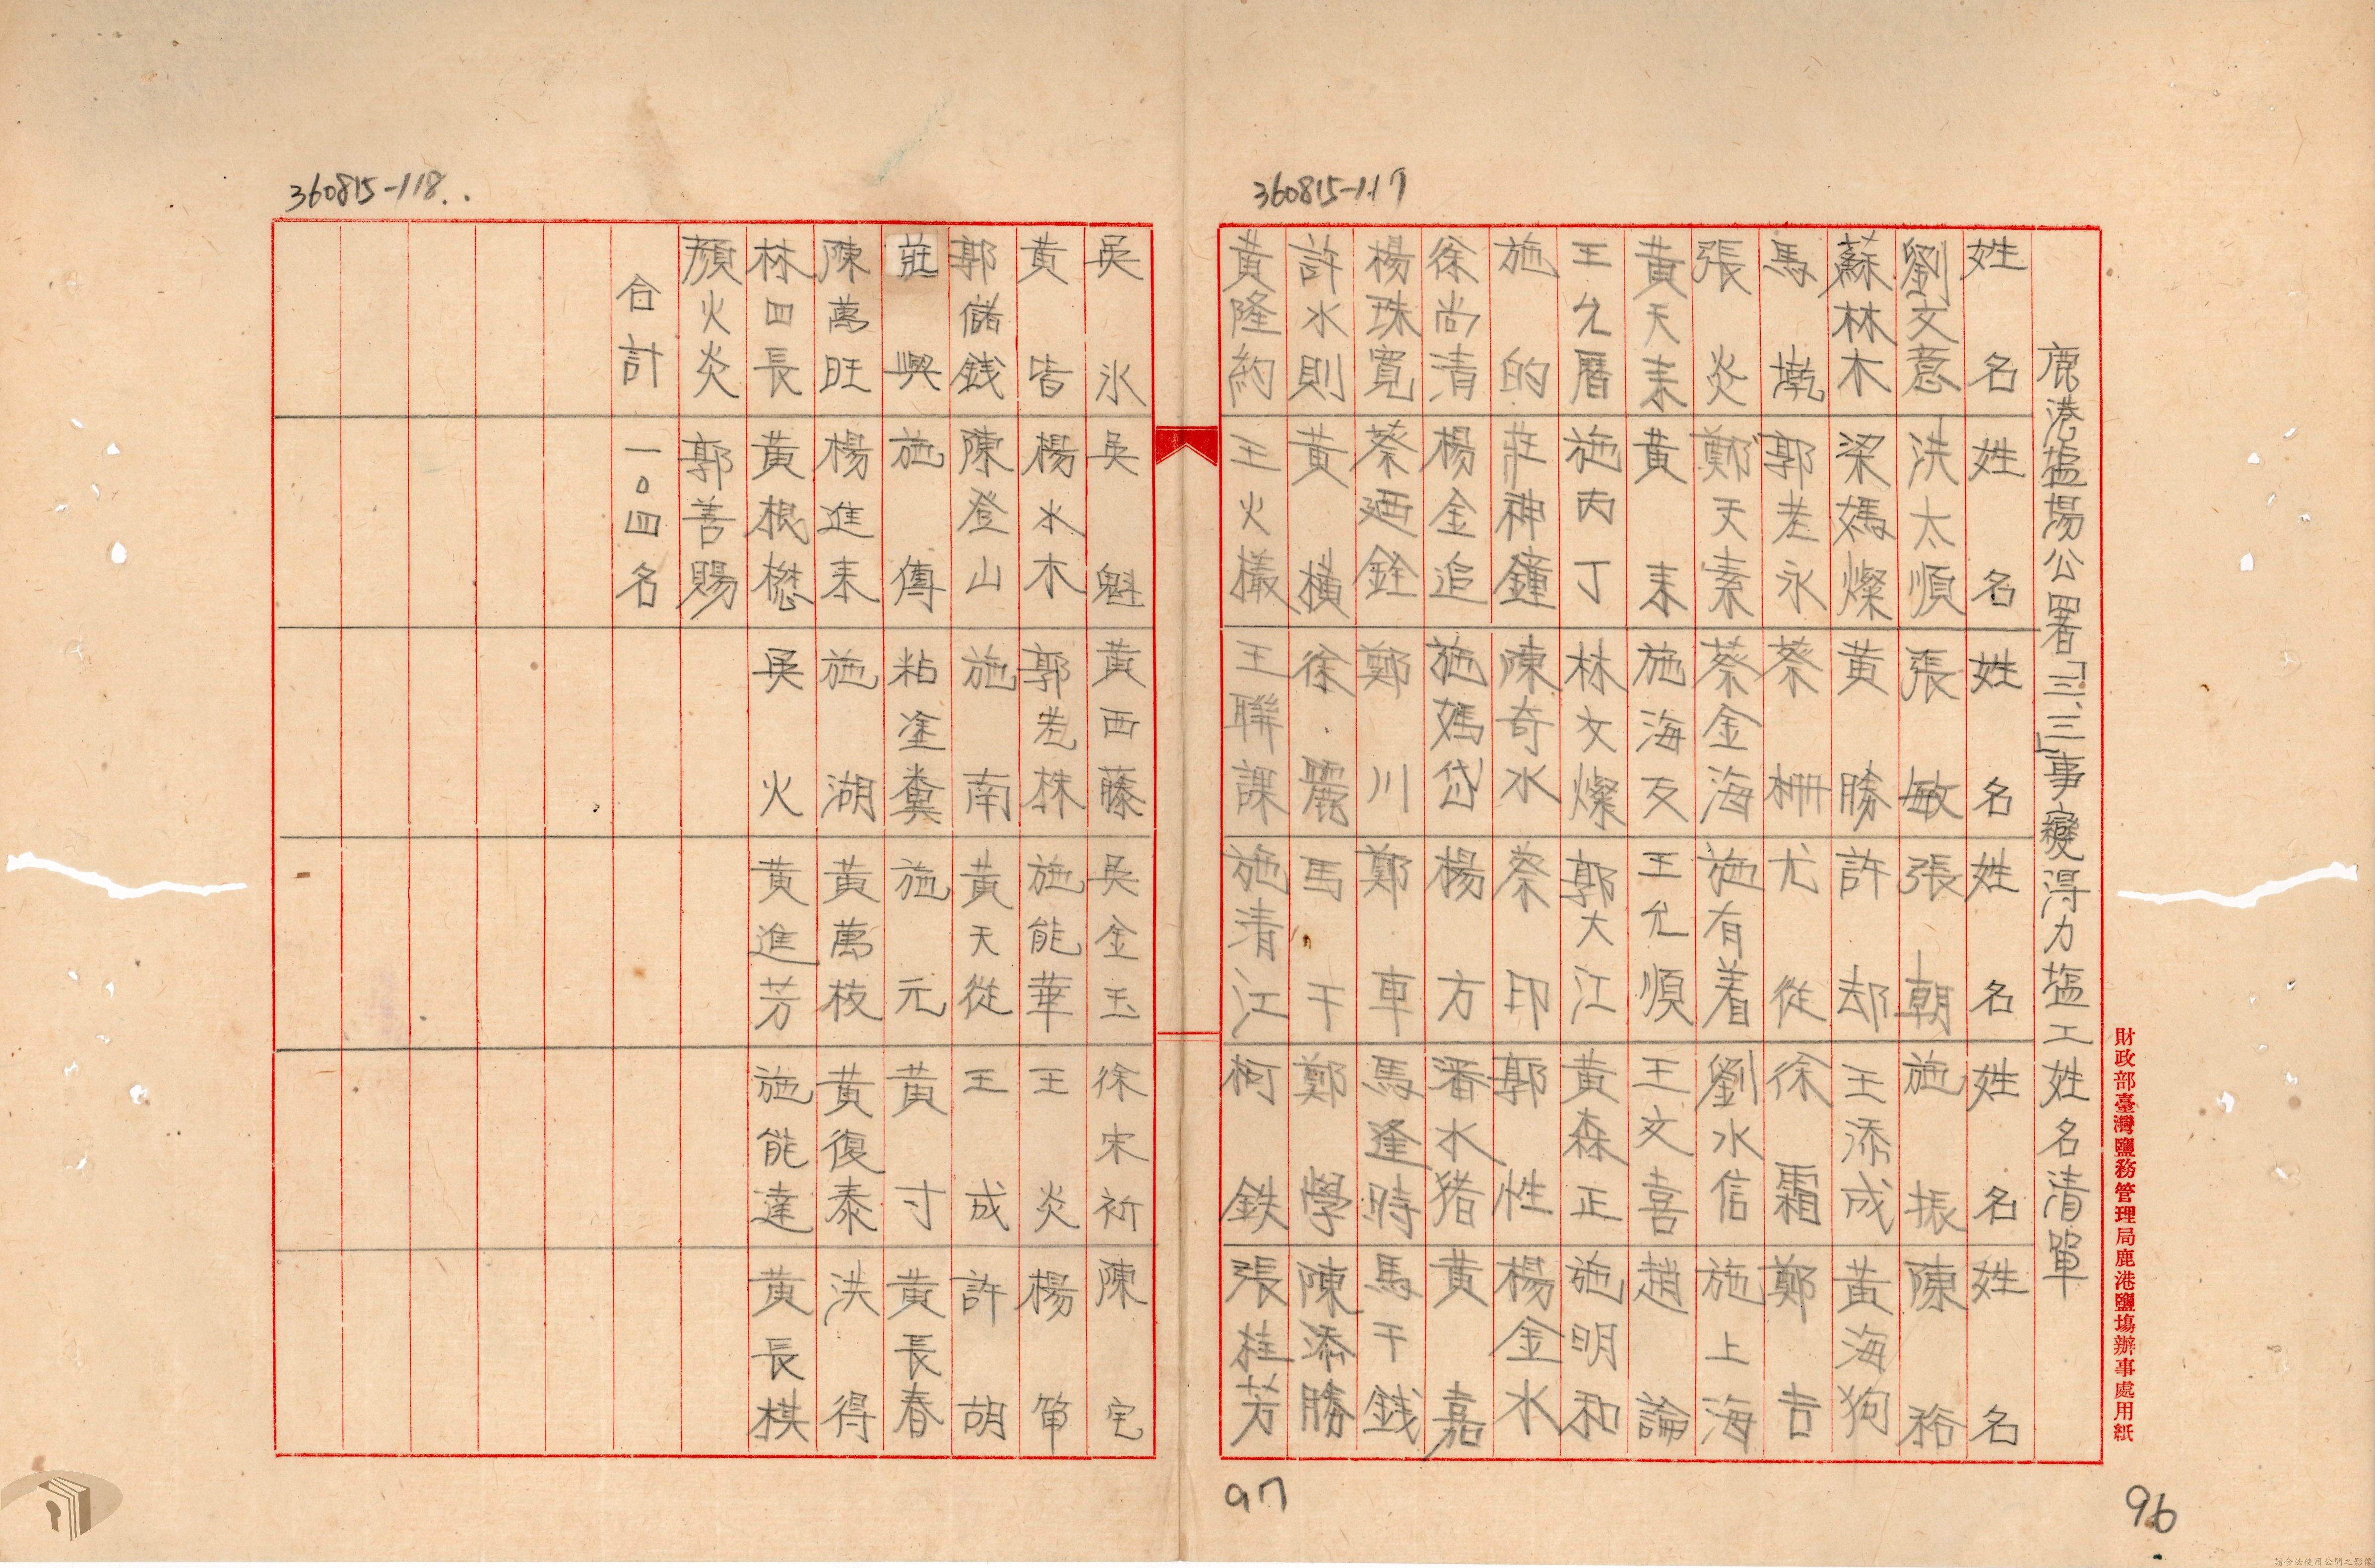 360815-117
鹿港塩場公署「三、三」事變得力塩工姓名清單
姓名 姓名 姓名 姓名 姓名 姓名
劉文意 洪太順 張敏 張朝 施振 陳裕
蘇林木 梁媽燦 黃勝 許却 王添成 黃海狗
馬墘 郭老永 蔡柵 尤從 徐霜 鄭吉
張炎 鄭天素 蔡金海 施有着 劉水信 施上海
黃天来 黃来 施海反 王允順 王文喜 趙論
王允曆 施丙丁 林文燦 郭大江 黃森正 施明和
施的 莊神鐘 陳奇水 蔡印 郭性 楊金水
徐尚清 楊金追 施媽岱 楊方 潘水猪 黃嘉
楊珠寬 蔡廼銓 鄭川 鄭車 馬逢時 馬干錢
許水則 黃橫 徐麗 馬干 鄭學 陳添勝
黃隆約 王火攥 王聯課 施清江 柯鉄 張桂芳
財政部臺灣鹽務管理局鹿港鹽塲辦事處用紙
96
97
360815-118..
吳氷 吳魁 黃西藤 吳金玉 徐宋祈 陳宅
黃皆 楊水木 郭老株 施能華 王炎 楊笛
郭儲錢 陳登山 施南 黃天從 王成 許胡
莊興 施傳 粘塗糞 施元 黃寸 黃長春
陳萬旺 楊進来 施湖 黃萬枝 黃復泰 洪得
林四長 黃根樾 吳火 黃進芳 施能達 黃長棋
顏火炎 郭善賜
合計 一〇四名